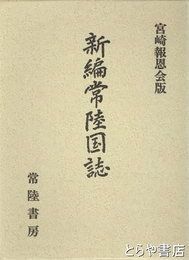 宮崎報恩会版
新編常陸国誌
常陸書房
とらや書房